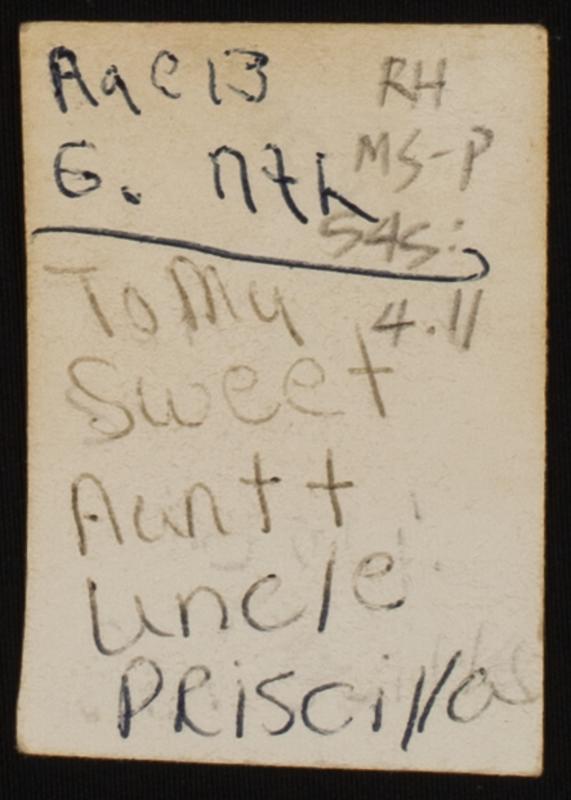 Age 13
6. nth
RH
MS-P
S4S:
4.11
To My
Sweet
Aunt +
uncle
PRiscilla